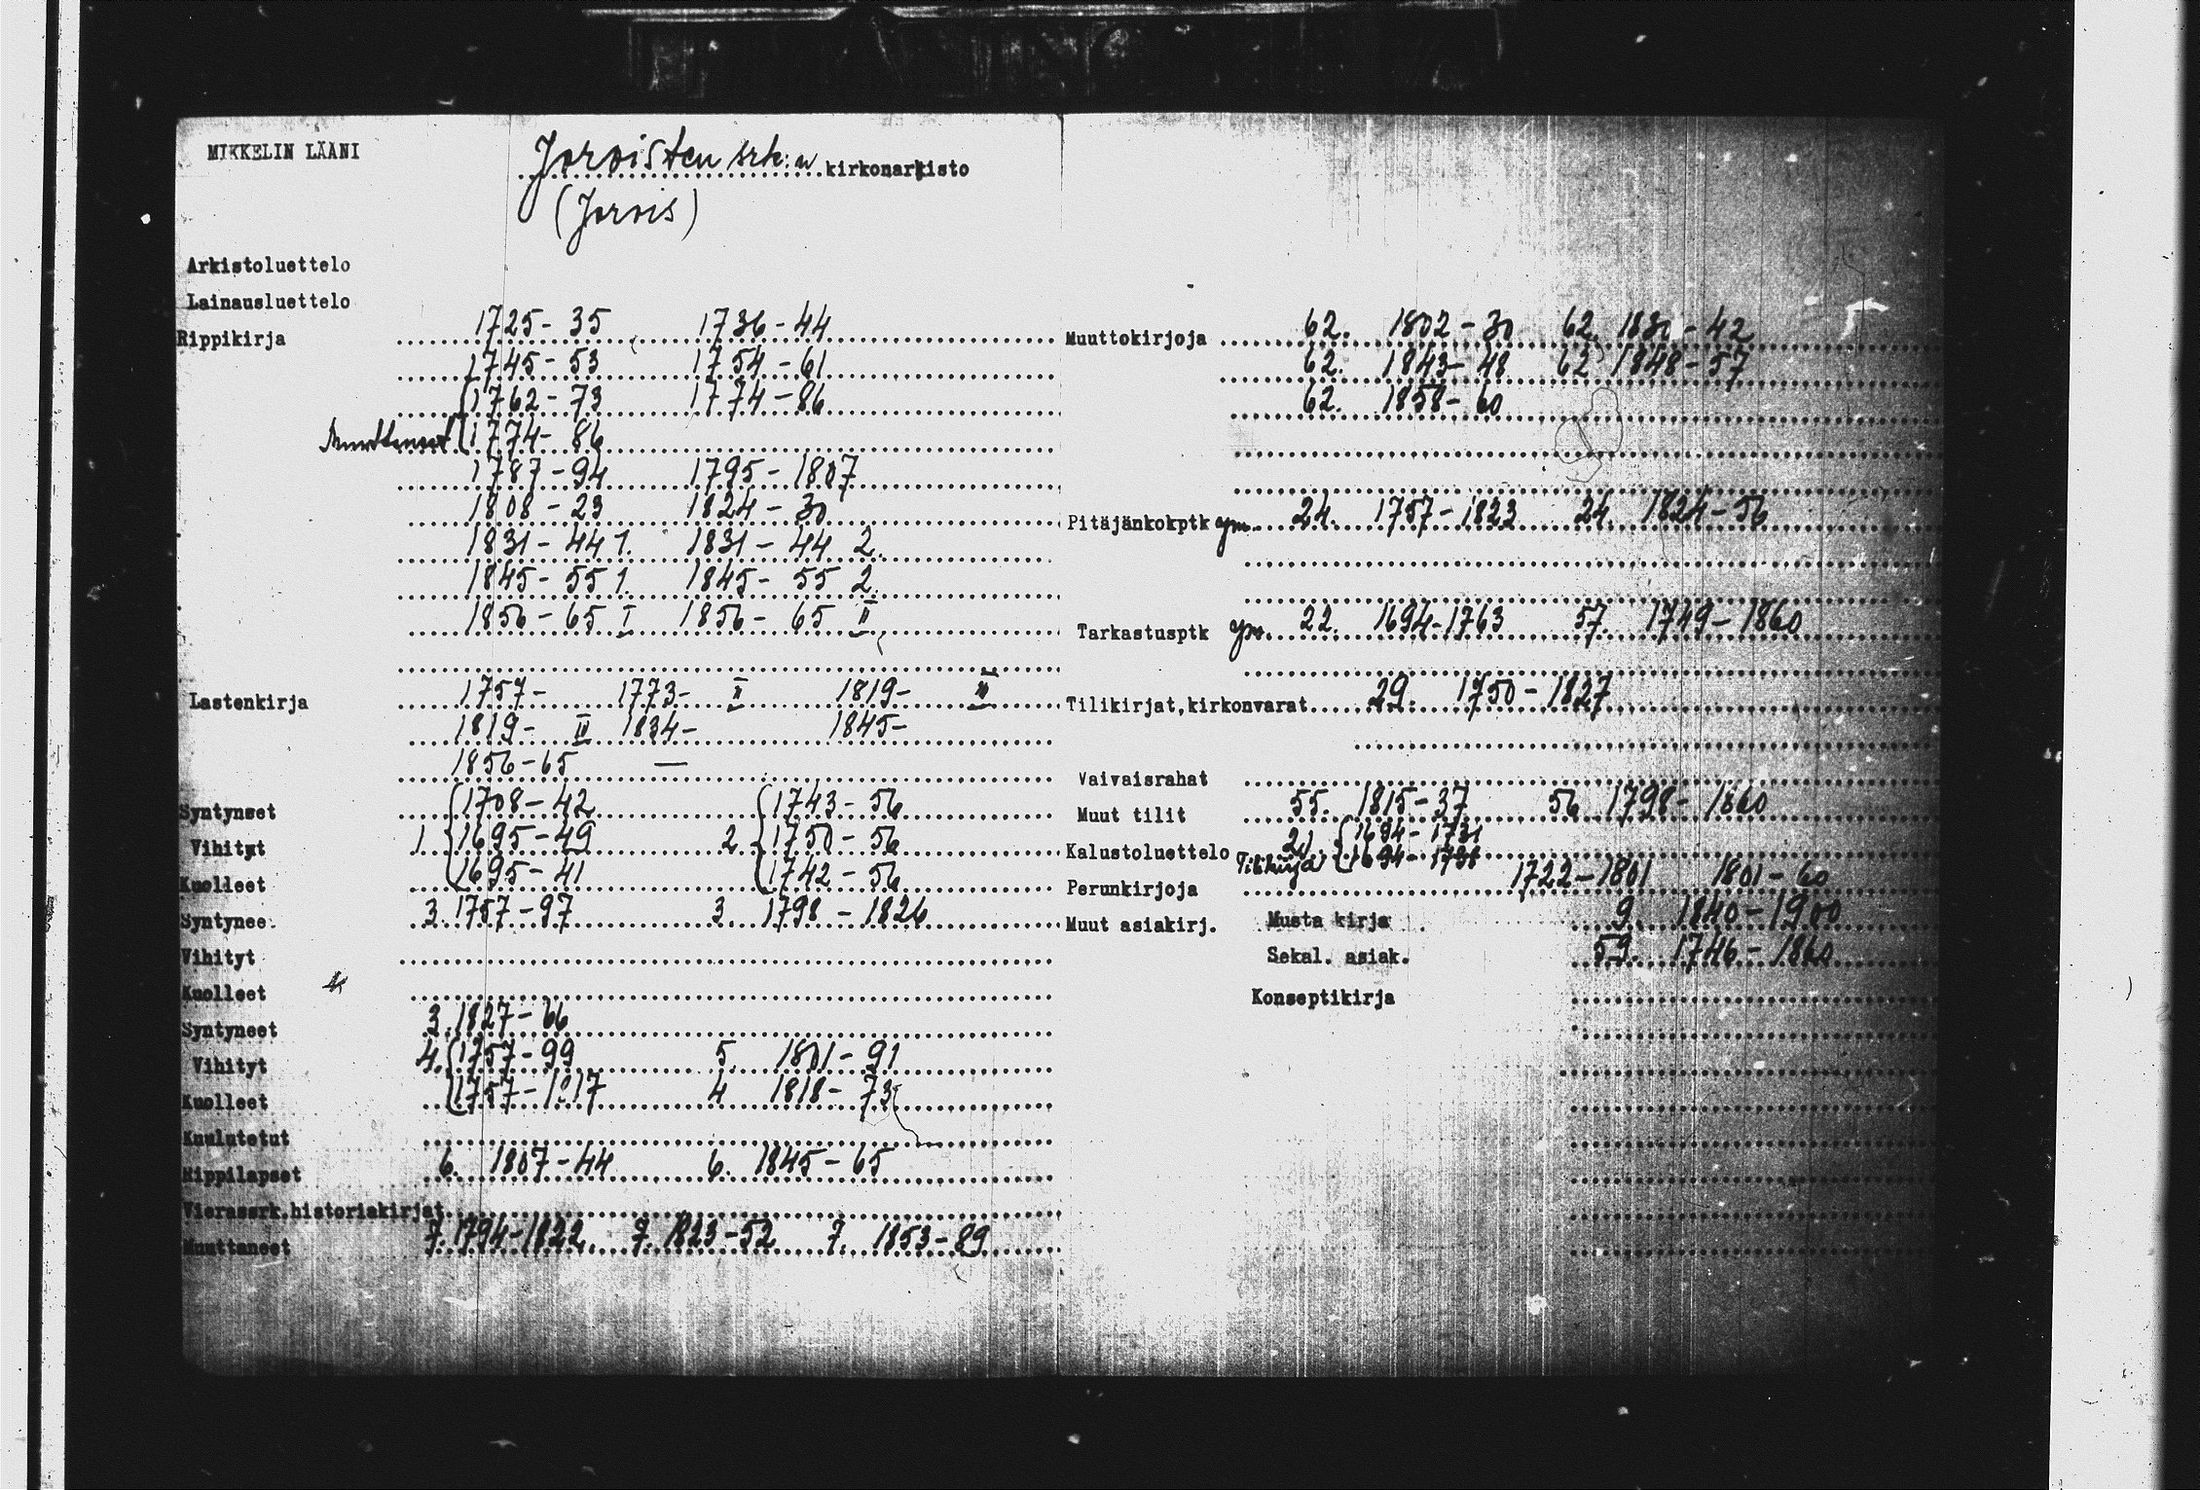 MIKKELIN LÄÄNI
Joroisten srk:n kirkonarkisto
(Jorois)
Arkistoluettelo
Lainausluettelo
Rippikirja 1725-35 1736-44
1745-53 1754-61
1762-73 1774-86
Muuttaneet 1774-86
1787-94 1795-1807
1808-23 1824-30
1831-44 1. 1831-44 2.
1845-55 1. 1845-55 2.
1856-65 I 1856-65 II
Lastenkirja 1757- 1773- II 1819-
1819- 1834- 1845-
1856-65 —
Syntyneet 1708-42 1743-56
Vihityt 1 1695-49 2 1750-56
Kuolleet 1695-41 1742-56
Syntynee. 3. 1757-97 3. 1798-1826
Vihityt
Kuolleet
Syntyneet 3. 1827-66
Vihityt 4. 1757-99 5. 1801-91
Kuolleet 1757-1817 4 1818-73
Kuulutetut
Rippilapset 6. 1807-44 6. 1845-65
Vierassrk.historiakirjat
Muuttaneet 7. 1794-1822 7. 1823-52 7. 1853-89
Muuttokirjoja 62. 1802-30 62 1830-42
62. 1843-48 62 1848-57
62. 1858-60
Pitäjänkokptk ym. 24. 1757-1823 24. 1824-56
Tarkastusptk ym. 22. 1694-1763 57. 1749-1860
Tilikirjat,kirkonvarat 29. 1750-1827
Vaivaisrahat
Muut tilit 55. 1815-37 56 1798-1860
Kalustoluettelo 21. 1694-1731
Tilikirja 1694-1731
Perunkirjoja 1722-1801 1801-60
Muut asiakirj. Musta kirja 9. 1840-1900
Sekal. asiak. 59. 1746-1860
Konseptikirja